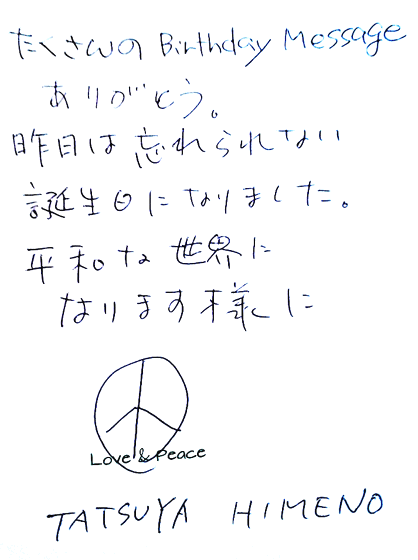 たくさんの Birthday Message
ありがとう。
昨日は忘れられない
誕生日になりました。
平和な世界に
なります様に
Love & Peace
TATSUYA HIMENO